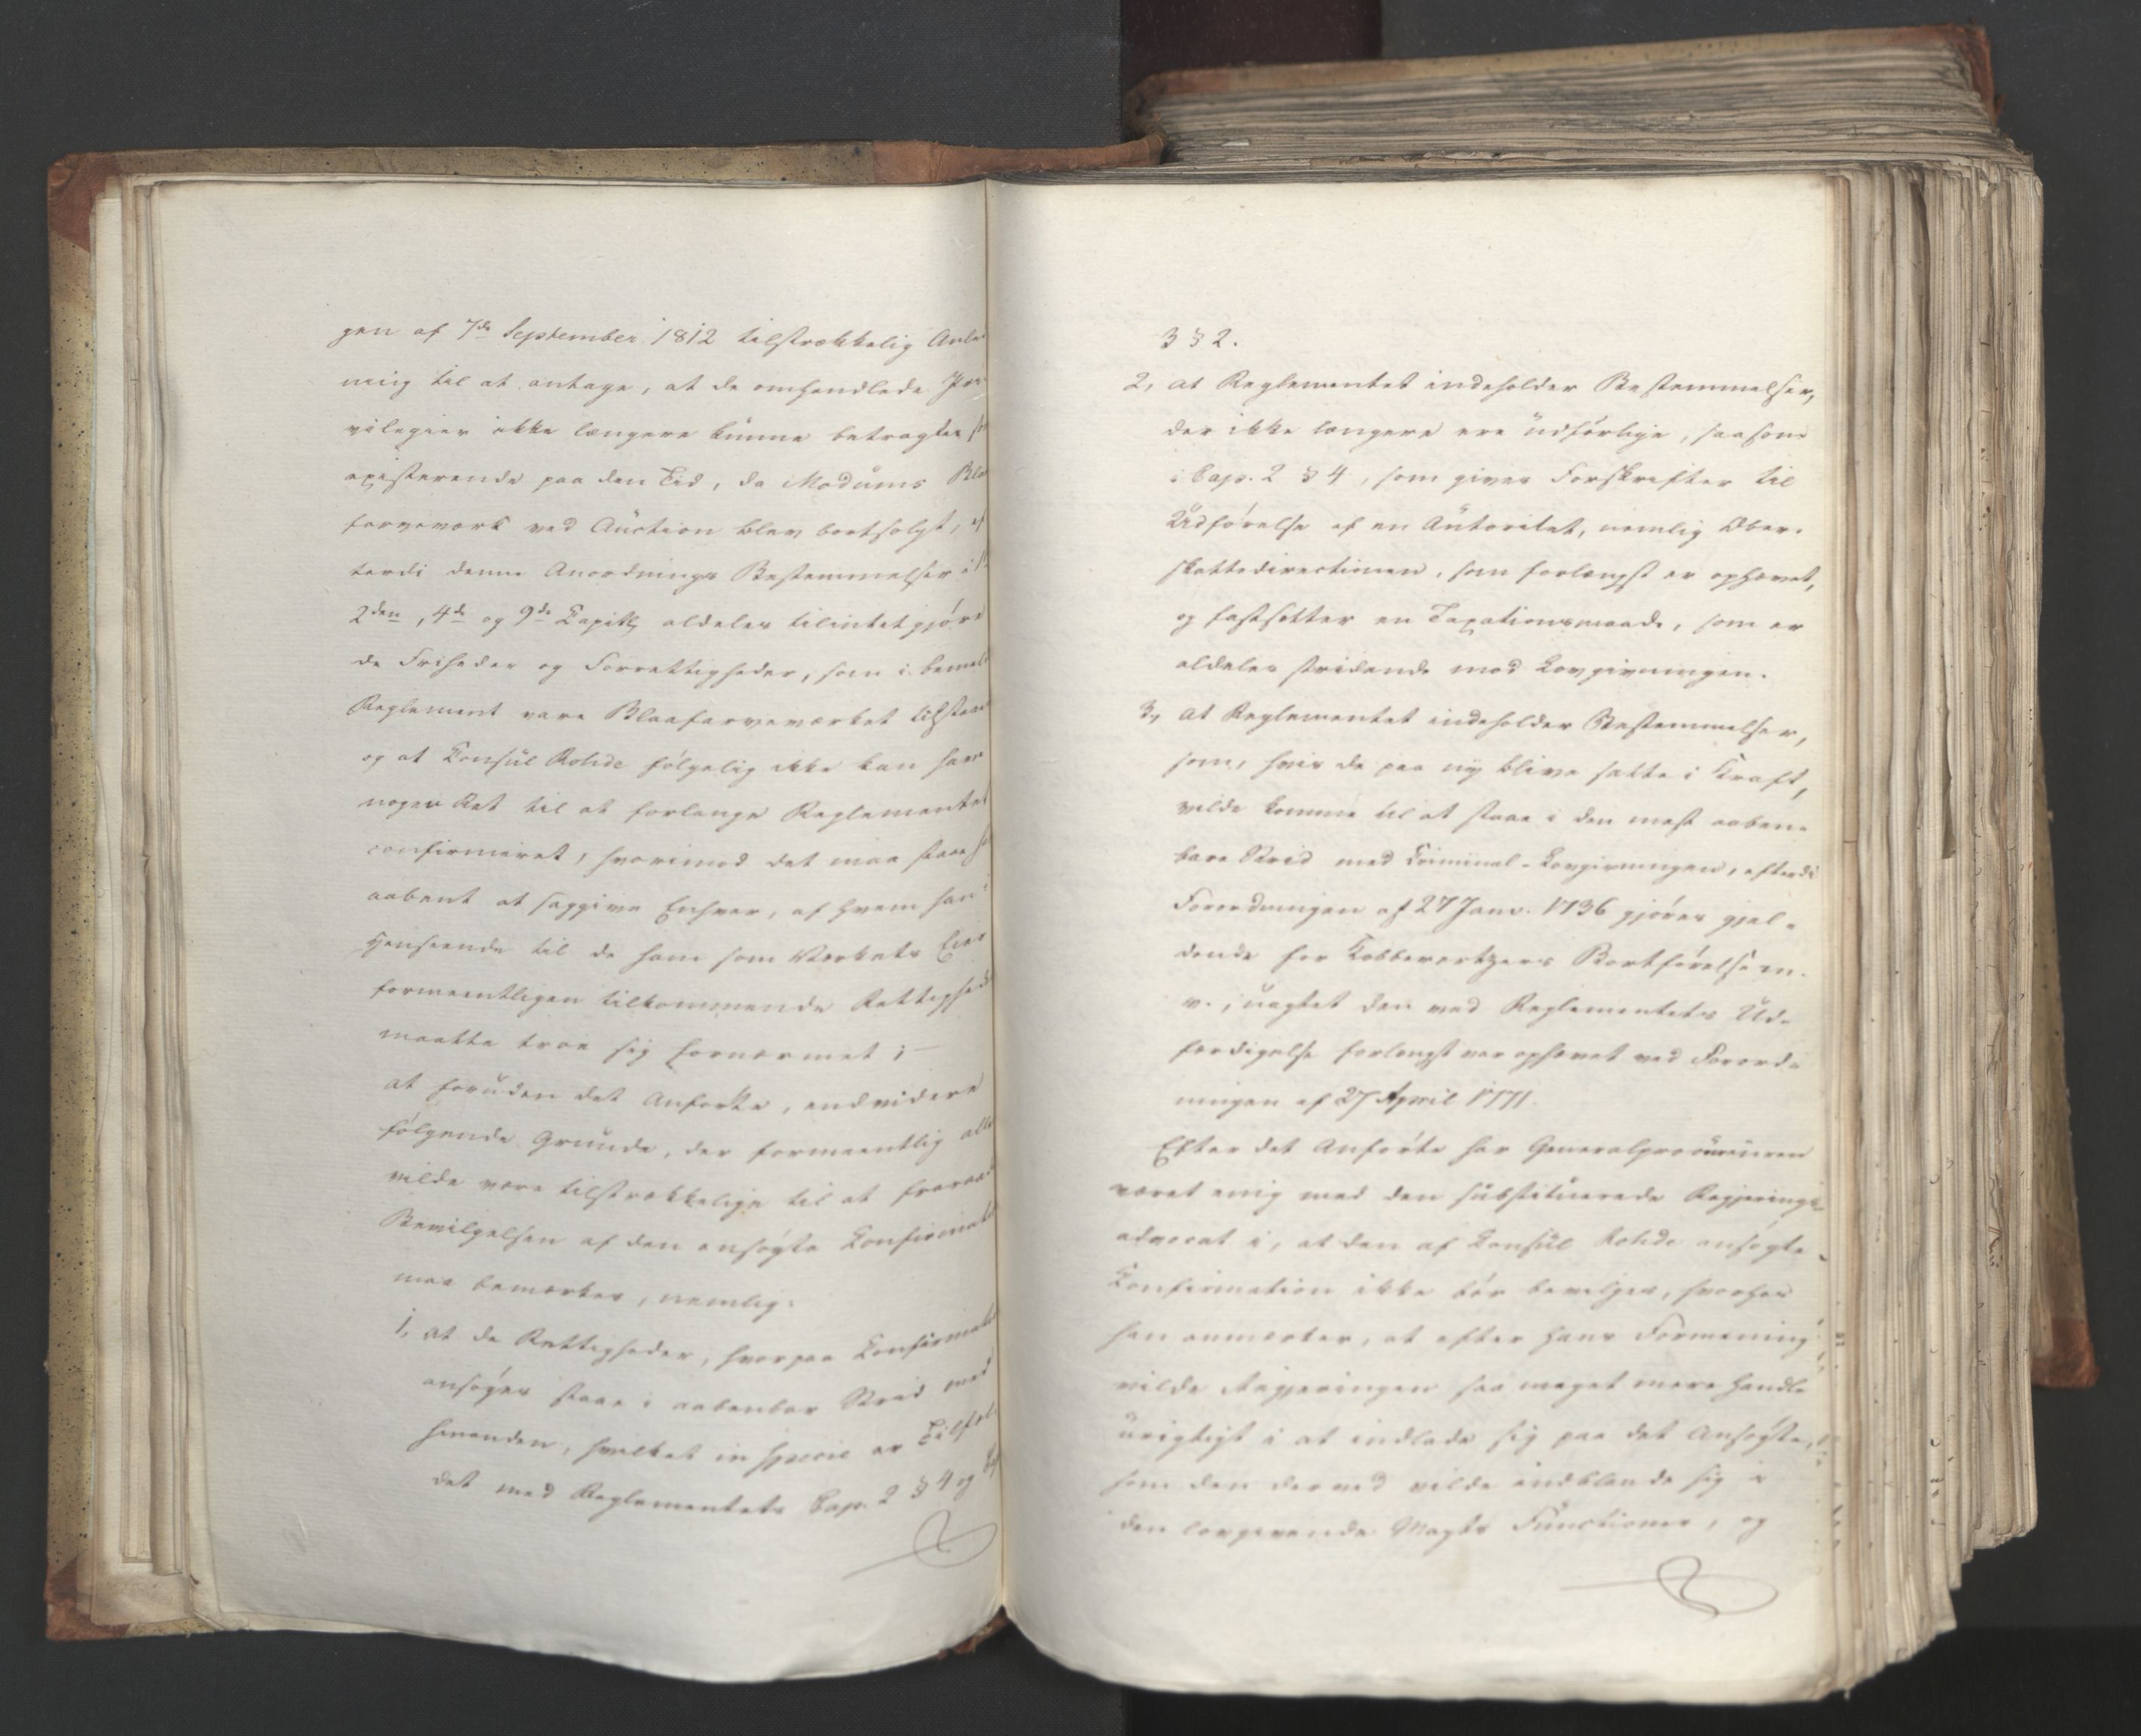 gen af 7de September 1812 tilstrækkelig Anled
ning til at antage, at de omhandlede Pri
vilegier ikke længere kunne betragtes som
existerende paa den Tid, da Modums Blaa
farveværk ved Auction blev bortsolgt, ef
terdi denne Anordnings Bestemmelser i
2den, 4de og 9de Capitler aldeles tilintetgjøre
de Friheder og Forrettigheder, som i bemeldte
Reglement vare Blaafarveværket tilstaaet
og at Consul Rohde følgelig ikke kan have
nogen Ret til at forlange Reglementet
confirmeret, hvorimod det maa staae
aabent at saggive Enhver, af hvem han i
Henseende til de ham som Værkets Eier
formeentligen tilkommende Rettigheder
maatte troe sig fornærmet; –
at foruden det Anførte, endvidere
følgende Grunde, der formeentlig alle
vilde være tilstrækkelige til at fraraade
Bevilgelsen af den ansøgte Confirmation
maa bemærkes, nemlig:
1, at de Rettigheder, hvorpaa Confirmation
ansøges staae i aabenbar Strid med
hinanden, hvilket in specie er Tilfæl
det med Reglementets Cap. 2 § 4 og Cap
3 § 2.
2, at Reglementet indeholder Bestemmelser,
der ikke længere ere udførlige, saasom
i Cap. 2 § 4, som giver Forskrifter til
Udførelse af en Autoritet, nemlig Over-
skattedirectionen, som forlængst er ophævet,
og fastsætter en Taxationsmaade, som er
aldeles stridende mod Lovgivningen.
3, at Reglementet indeholder Bestemmelser,
som, hvis de paa ny blive satte i Kraft,
vilde komme til at staae i den mest aaben-
bare Strid med Criminal-Lovgivningen, efterdi
Forordningen af 27 Janv. 1736 gjøres gjæl-
dende for Kobberertzers Bortførelse m.
v., uagtet den ved Reglementets Ud-
færdigelse forlængst var ophævet ved Forord-
ningen af 27 April 1771.
Efter det Anførte har Generalprocureuren
været enig med den substituerede Regjerings-
advocat i, at den af Consul Rohde ansøgte
Confirmation ikke bør bevilges, hvorhos
han anmærker, at efter hans Formening
vilde Regjeringen saa meget mere handle
urigtigt i at indlade sig paa det Ansøgte,
som den derved vilde indblande sig i
den lovgivende Magts Functioner, og